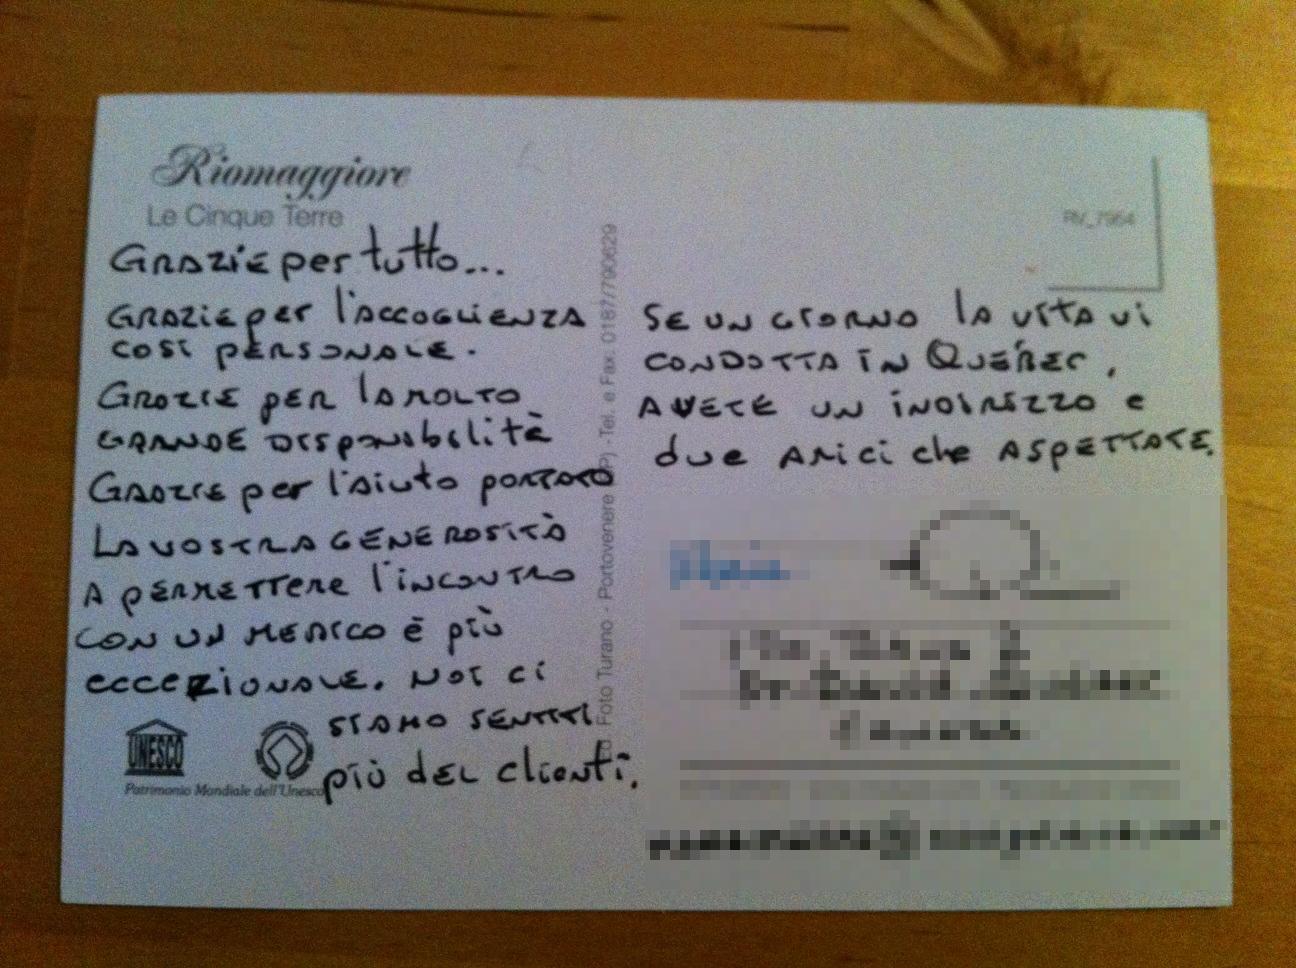 Riomaggiore
Le Cinque Terre
GRAZIE per tutto...
GRAZIE per l'ACCOGLIENZA
COSI PERSONALE.
GRAZIE PER LA MOLTO
GRANDE DISPONIBILITÀ
GRAZIE per l'aiuto PORTATO
LA VOSTRA GENEROSITÀ
A PERMETTERE l'INCONTRO
CON UN MEDICO È PIÙ
ECCEZIONALE. NOI CI
SIAMO SENTITI
PIÙ DEI Clienti.
UNESCO
Patrimonio Mondiale dell'Unesco
Foto Turano - Portovenere (SP) - Tel. e Fax. 0187/790629
RV_7964
SE UN GIORNO LA VITA VI
CONDOTTA IN QUÉBEC,
AVETE UN INDIRIZZO e
due AMICI che ASPETTATE.